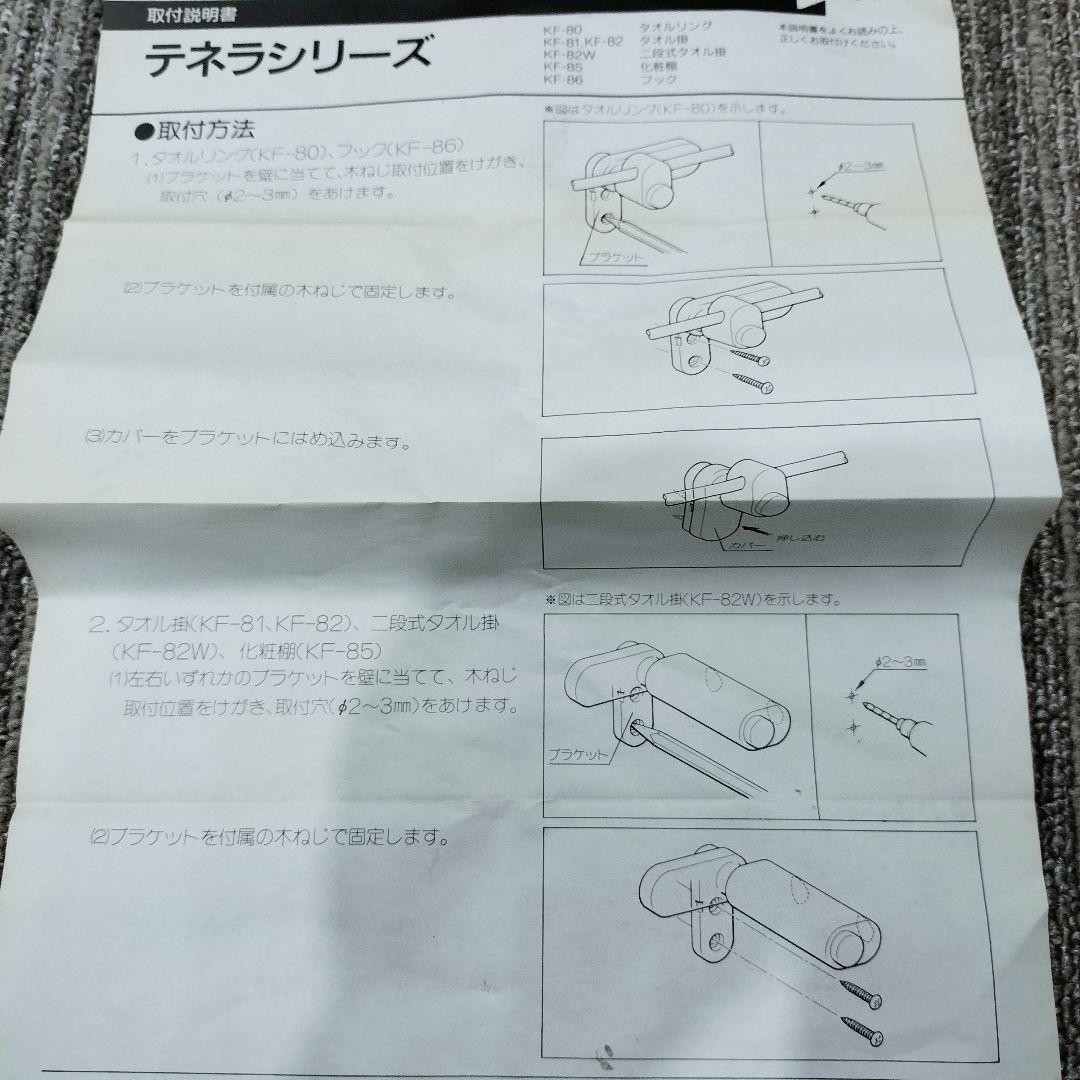 取付説明書
テネラシリーズ
KF-80 タオルリング
KF-81,KF-82 タオル掛
KF-82W 二段式タオル掛
KF-85 化粧棚
KF-86 フック
本説明書をよくお読みの上、
正しくお取付けください。
●取付方法
※図はタオルリング(KF-80)を示します。
1.タオルリング(KF-80)、フック(KF-86)
(1)ブラケットを壁に当てて、木ねじ取付位置をけがき、
取付穴（φ2〜3mm）をあけます。
φ2〜3mm
ブラケット
(2)ブラケットを付属の木ねじで固定します。
(3)カバーをブラケットにはめ込みます。
カバー
押し込む
※図は二段式タオル掛(KF-82W)を示します。
2.タオル掛(KF-81、KF-82)、二段式タオル掛
(KF-82W)、化粧棚(KF-85)
(1)左右いずれかのブラケットを壁に当てて、木ねじ
取付位置をけがき、取付穴(φ2〜3mm)をあけます。
φ2〜3mm
ブラケット
(2)ブラケットを付属の木ねじで固定します。